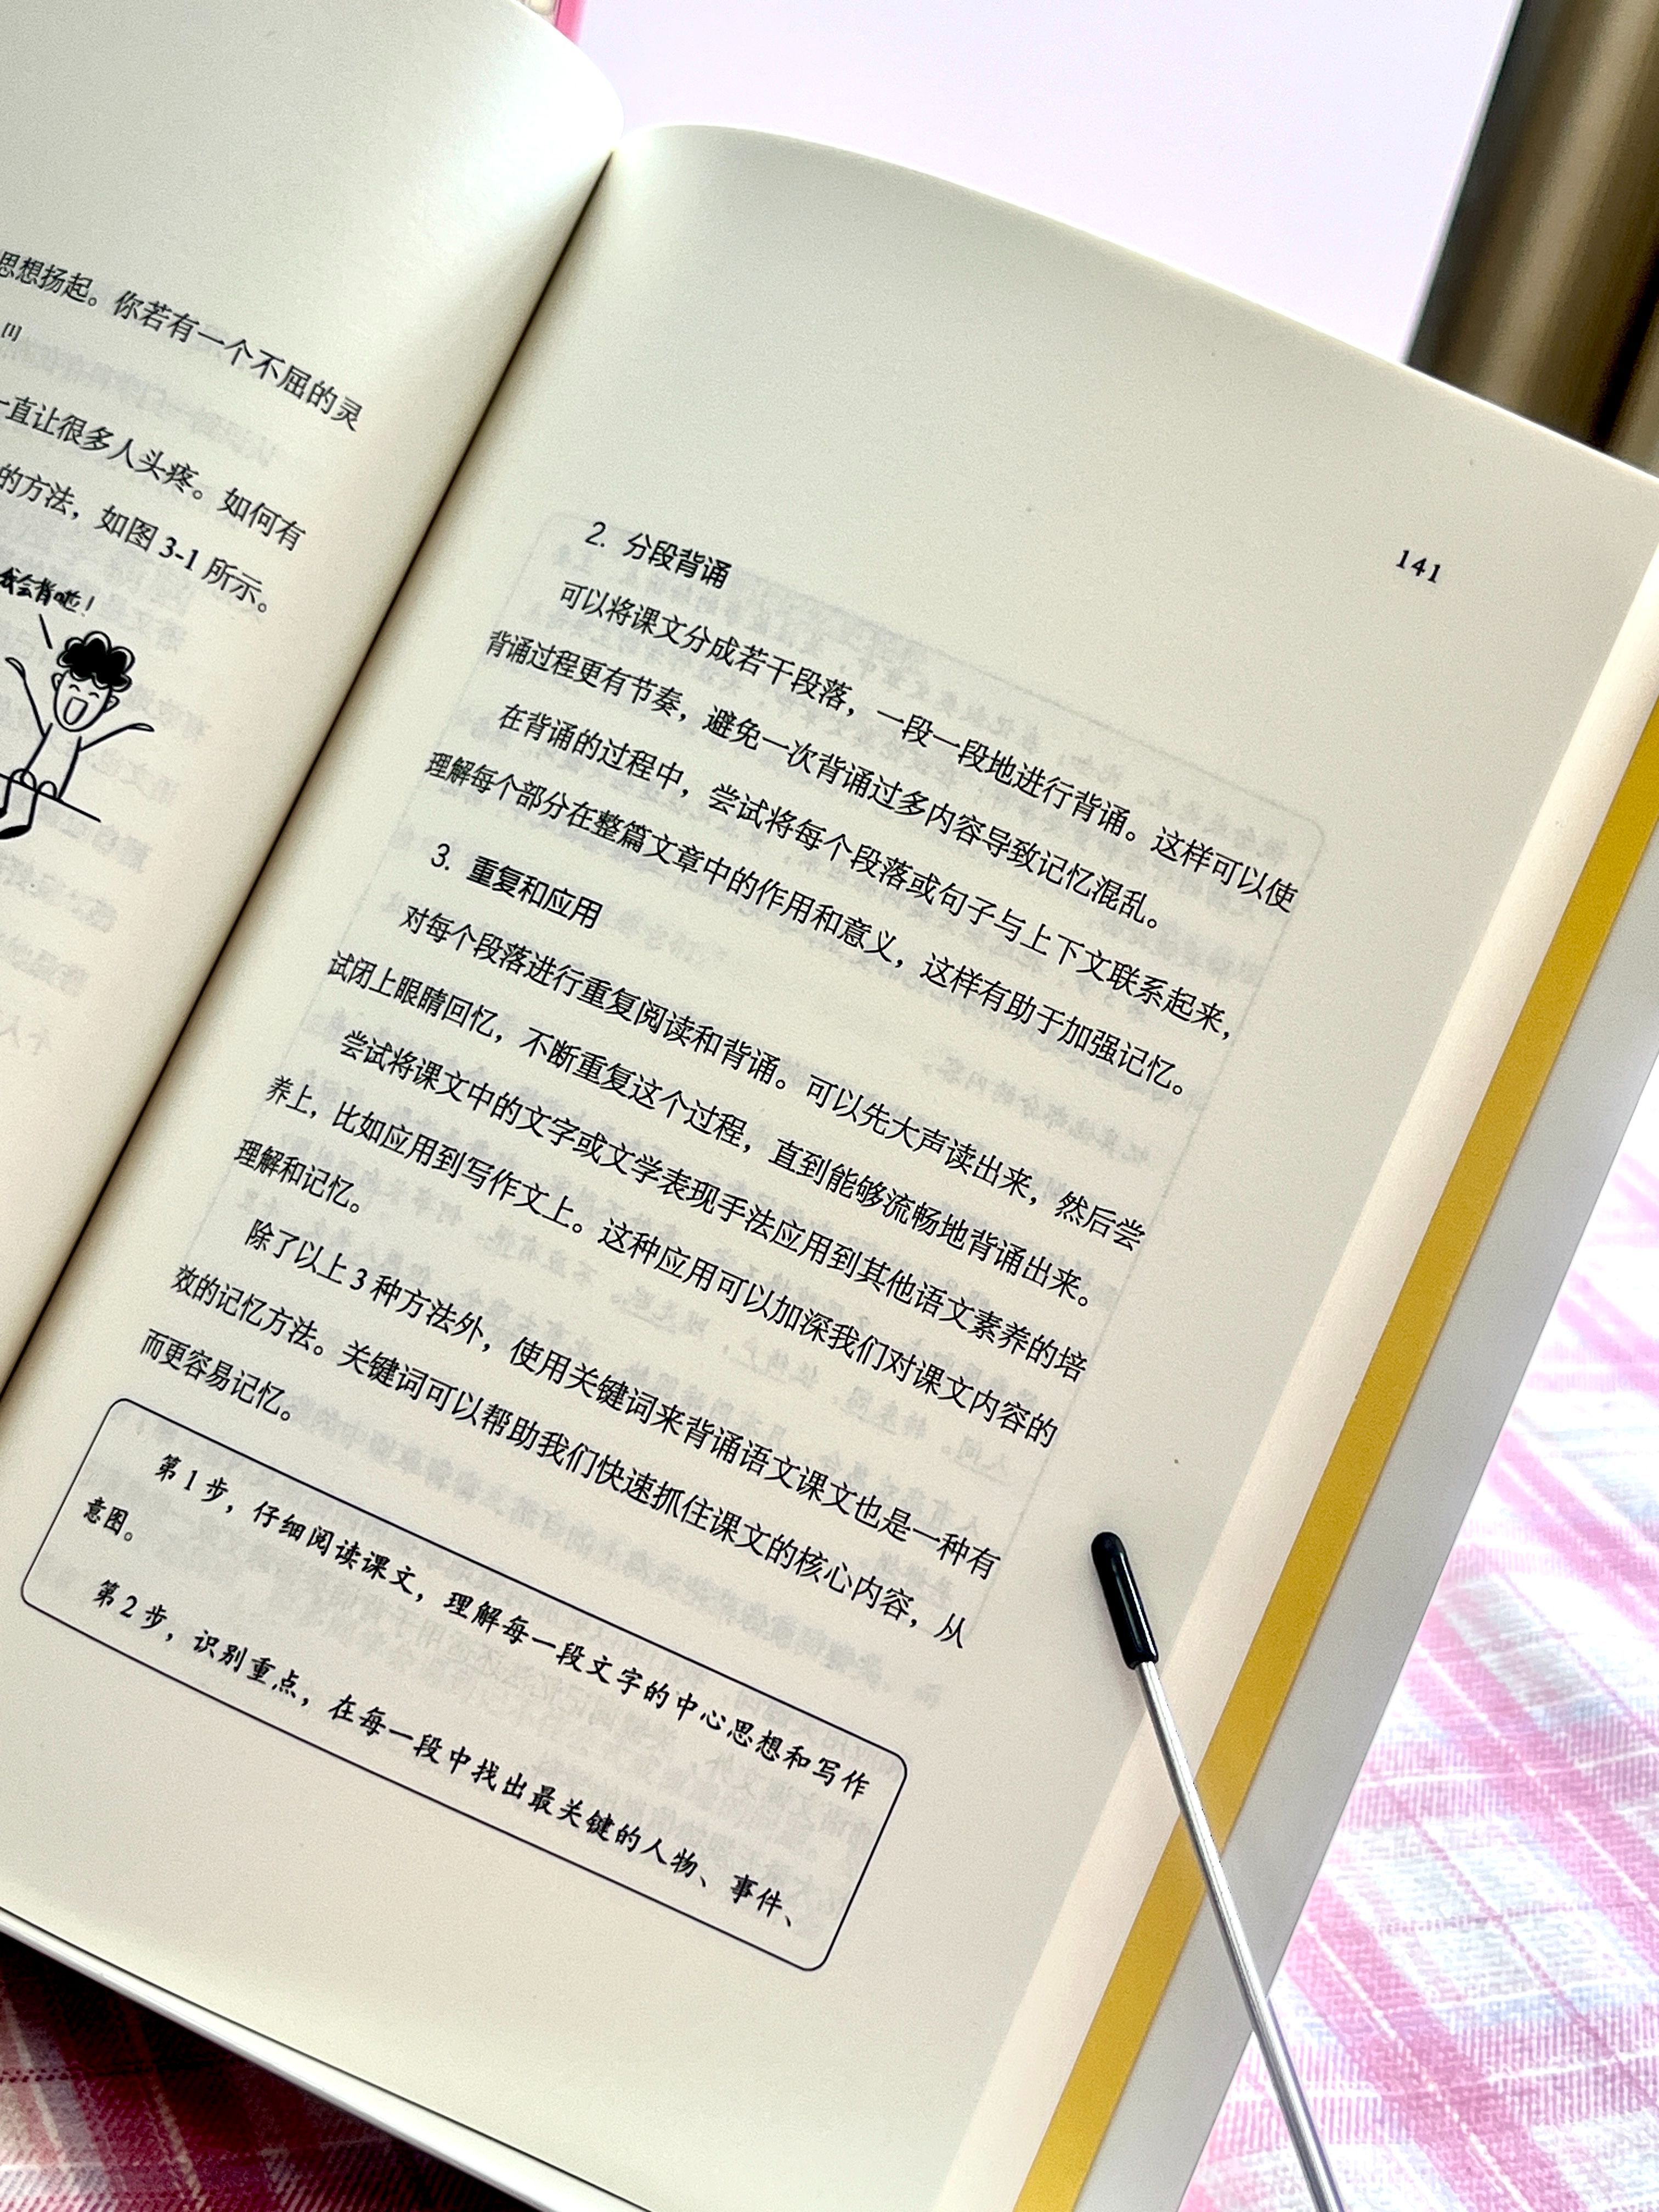 思想扬起。你若有一个不屈的灵
[1]
一直让很多人头疼。如何有
的方法，如图 3-1 所示。
我会背啦！
141
2. 分段背诵
可以将课文分成若干段落，一段一段地进行背诵。这样可以使
背诵过程更有节奏，避免一次背诵过多内容导致记忆混乱。
在背诵的过程中，尝试将每个段落或句子与上下文联系起来，
理解每个部分在整篇文章中的作用和意义，这样有助于加强记忆。
3. 重复和应用
对每个段落进行重复阅读和背诵。可以先大声读出来，然后尝
试闭上眼睛回忆，不断重复这个过程，直到能够流畅地背诵出来。
尝试将课文中的文字或文学表现手法应用到其他语文素养的培
养上，比如应用到写作文上。这种应用可以加深我们对课文内容的
理解和记忆。
除了以上 3 种方法外，使用关键词来背诵语文课文也是一种有
效的记忆方法。关键词可以帮助我们快速抓住课文的核心内容，从
而更容易记忆。
第 1 步，仔细阅读课文，理解每一段文字的中心思想和写作
意图。
第 2 步，识别重点，在每一段中找出最关键的人物、事件、